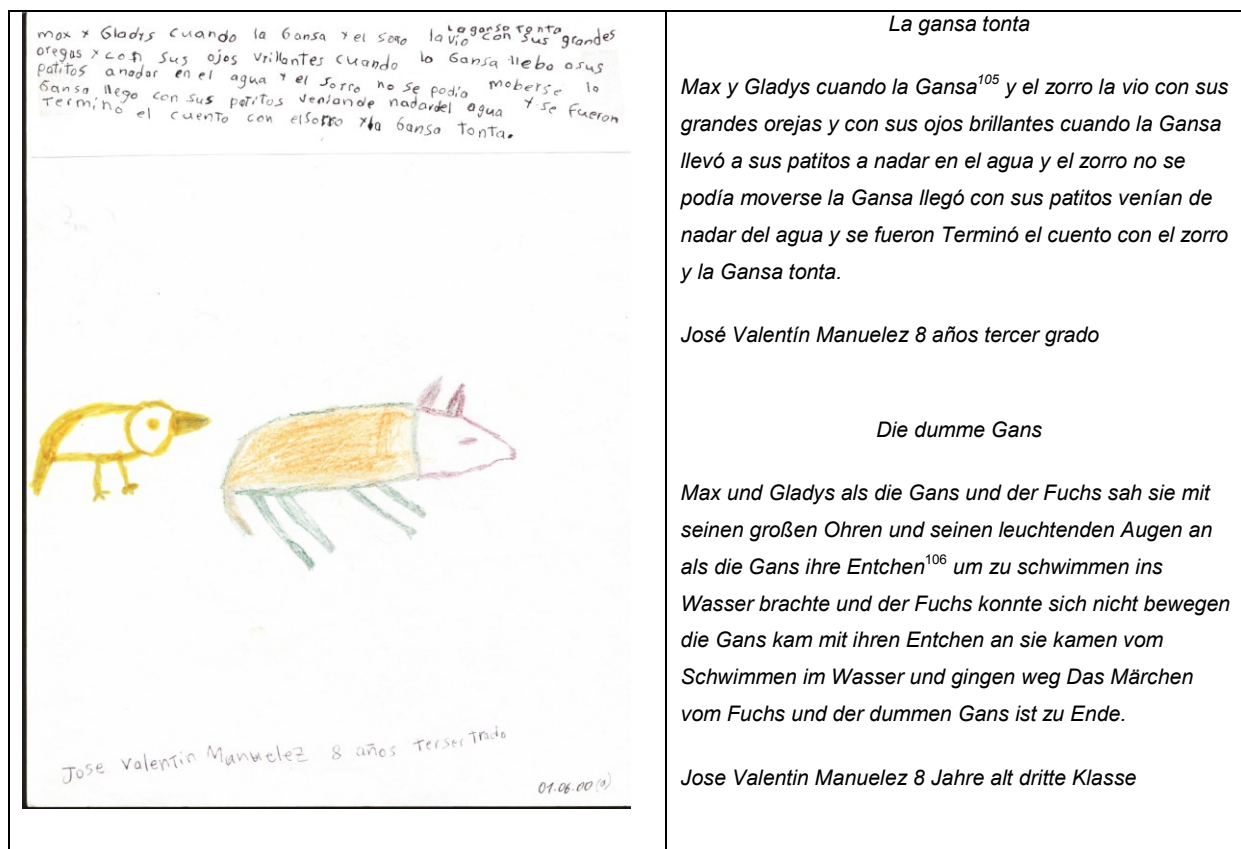 La gansa Tonta
max y Gladys cuando la Gansa y el soro la vio con sus grandes
oregas y con sus ojos vrillantes cuando la Gansa llebo asus
patitos anadar en el agua y el sorro no se podia moberse la
Gansa llego con sus patitos veniande nadardel agua y se fueron
Termino el cuento con elsorro yla Gansa Tonta.
Jose Valentin Manuelez 8 años Terser Trado
01.06.00 (a)
La gansa tonta
Max y Gladys cuando la Gansa105 y el zorro la vio con sus
grandes orejas y con sus ojos brillantes cuando la Gansa
llevó a sus patitos a nadar en el agua y el zorro no se
podía moverse la Gansa llegó con sus patitos venían de
nadar del agua y se fueron Terminó el cuento con el zorro
y la Gansa tonta.
José Valentín Manuelez 8 años tercer grado
Die dumme Gans
Max und Gladys als die Gans und der Fuchs sah sie mit
seinen großen Ohren und seinen leuchtenden Augen an
als die Gans ihre Entchen106 um zu schwimmen ins
Wasser brachte und der Fuchs konnte sich nicht bewegen
die Gans kam mit ihren Entchen an sie kamen vom
Schwimmen im Wasser und gingen weg Das Märchen
vom Fuchs und der dummen Gans ist zu Ende.
Jose Valentin Manuelez 8 Jahre alt dritte Klasse